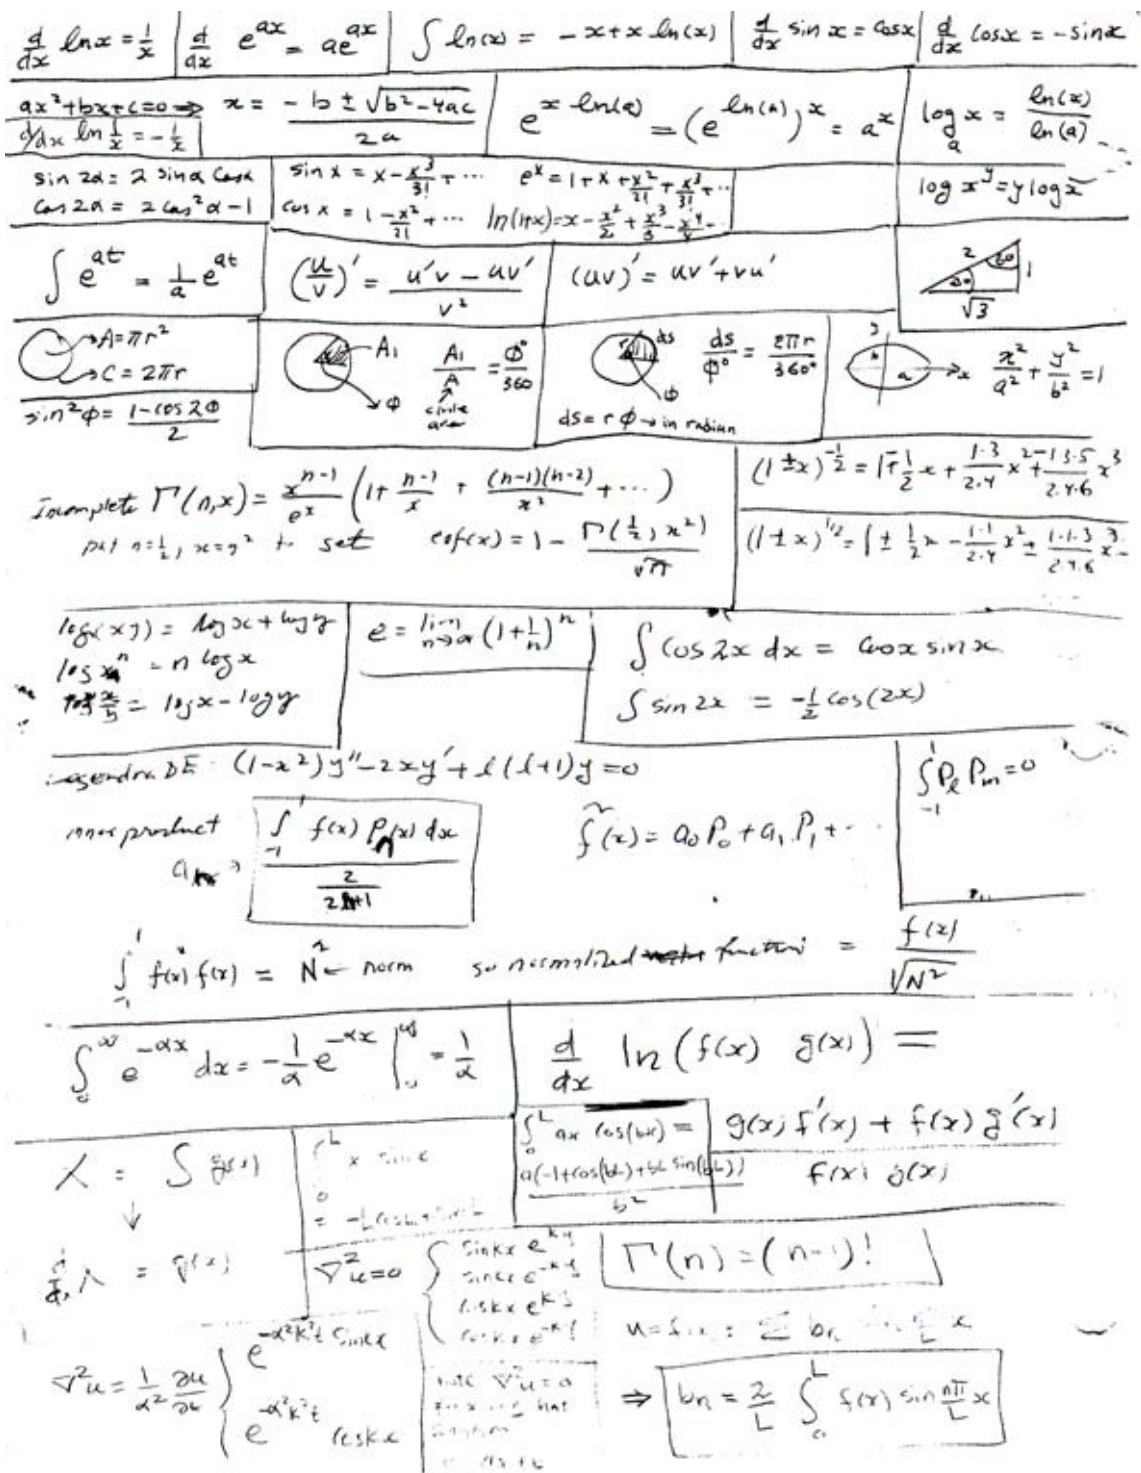 d/dx ln x = 1/x
d/dx e^ax = ae^ax
∫ ln(x) = -x+x ln(x)
d/dx sin x = cos x
d/dx cos x = -sin x
ax²+bx+c=0 ⇒ x = (-b ± √(b²-4ac))/2a
d/dx ln 1/x = -1/x
e^(x ln(a)) = (e^ln(a))^x = a^x
log_a x = ln(x)/ln(a)
sin 2α = 2 sin α cos α
cos 2α = 2 cos² α -1
sin x = x - x³/3! + ···
e^x = 1+x+x²/2!+x³/3!+··
cos x = 1 - x²/2! + ···
ln(1+x)=x-x²/2+x³/3-x⁴/4--
log x^y = y log x
∫ e^at = 1/a e^at
(u/v)' = (u'v - uv')/v²
(uv)' = uv'+vu'
2 60 1
30
√3
A=πr²
C=2πr
sin²φ = (1-cos 2φ)/2
A₁
A₁/A = φ°/360
φ
circle area
r ds
ds/φ° = 2πr/360°
φ
ds = r φ → in radian
y
b a → x
x²/a² + y²/b² = 1
Incomplete Γ(n,x) = x^(n-1)/e^x (1+ (n-1)/x + (n-1)(n-2)/x² + ···)
put n=1/2, x=x² to get erf(x) = 1 - Γ(1/2, x²)/√π
(1±x)^(-1/2) = 1∓1/2 x + 1·3/2·4 x² ∓ 1·3·5/2·4·6 x³
(1±x)^(1/2) = 1 ± 1/2 x - 1·1/2·4 x² ± 1·1·3/2·4·6 x³-
log(xy) = log x + log y
log x^n = n log x
log x/y = log x - log y
e = lim n→∞ (1+1/n)^n
∫ cos 2x dx = cos x sin x
∫ sin 2x = -1/2 cos(2x)
Legendre DE: (1-x²)y''-2xy'+l(l+1)y=0
∫₋₁¹ P_l P_m = 0
inner product
a_n = ∫₋₁¹ f(x) P_n(x) dx / (2/(2n+1))
f̃(x) = a₀P₀ + a₁P₁ + ··
∫₋₁¹ f(x)* f(x) = N² ← norm
so normalized function = f(x)/√N²
∫₀^∞ e^-αx dx = -1/α e^-αx |₀^∞ = 1/α
d/dx ln(f(x) g(x)) =
(g(x) f'(x) + f(x) g'(x))/(f(x) g(x))
∫₀^L ax cos(bx) =
a(-1+cos(bL)+bL sin(bL))/b²
λ = ∫ g(x)
↓
d/dx λ = g(x)
∫₀^L x sin x
= -L cos L + sin L
∇²u=0 { sin kx e^ky
sin kx e^-ky
cos kx e^ky
cos kx e^-ky
Γ(n) = (n-1)!
∇²u = 1/α² ∂u/∂t { e^-α²k²t sin kx
e^-α²k²t cos kx
∇²u=0
⇒ bn = 2/L ∫₀^L f(x) sin nπ/L x